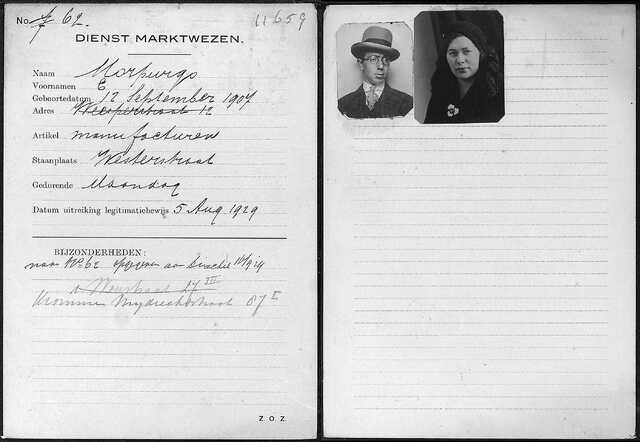 No. 62. 11659
DIENST MARKTWEZEN.
Naam Morpurgo
Voornamen E
Geboortedatum 12 September 1907
Adres Weesperstraat 12
Artikel manufacturen
Staanplaats Westerstraat
Gedurende Maandag
Datum uitreiking legitimatiebewijs 5 Aug 1929
BIJZONDERHEDEN:
naar No 62
27 III
Kromme Mijdrechtstraat 67 I
Z.O.Z.